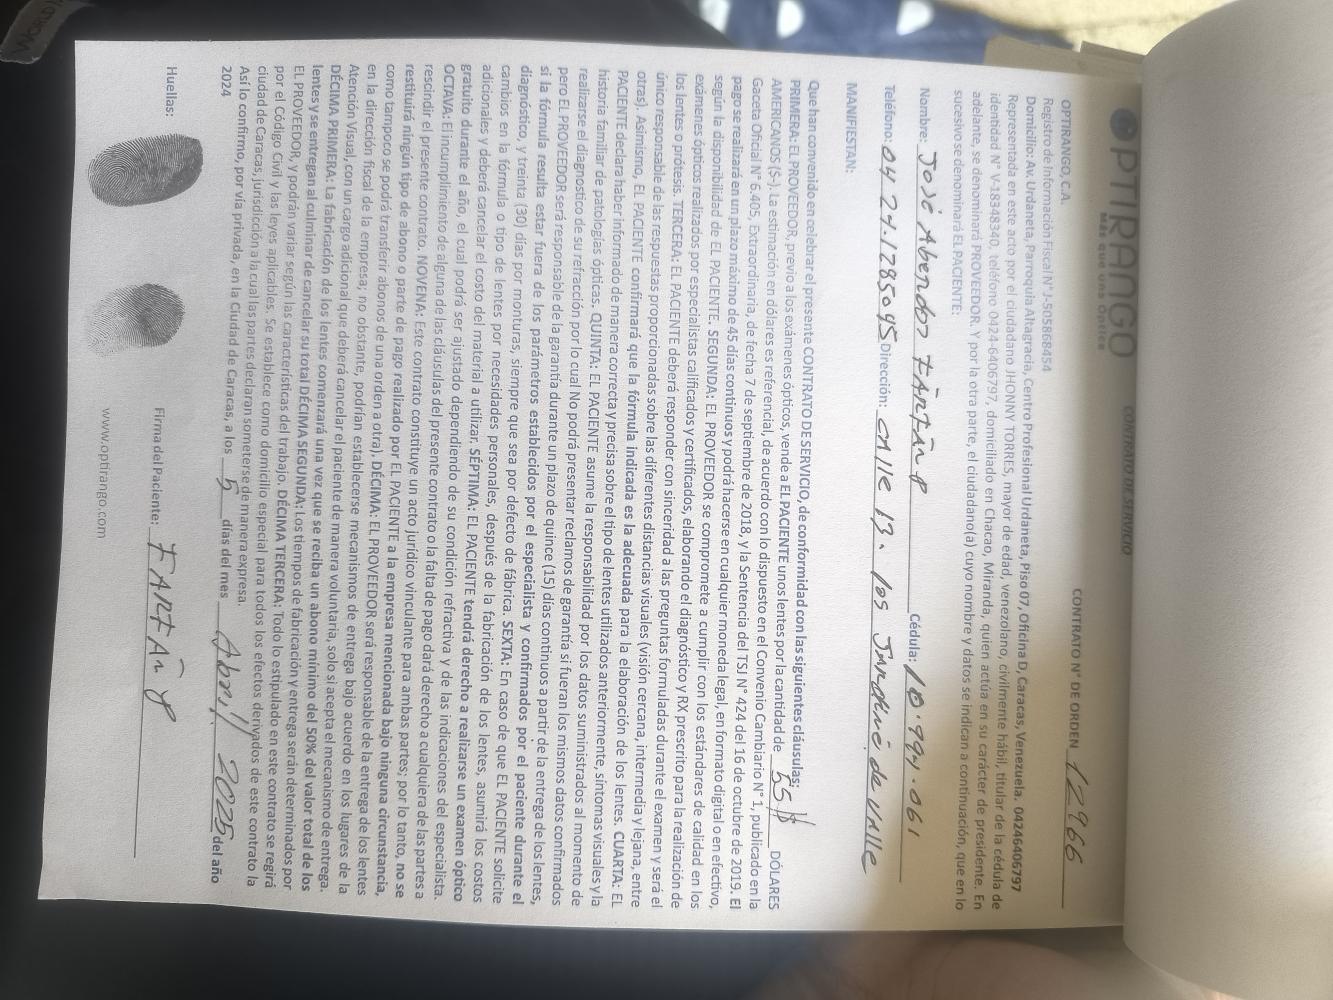 OPTIRANGO
Más que una Óptica
CONTRATO DE SERVICIO
CONTRATO N° DE ORDEN 12966
OPTIRANGO, C.A.
Registro de Información Fiscal N° J-505868454
Domicilio: Av. Urdaneta, Parroquia Altagracia, Centro Profesional Urdaneta, Piso 07, Oficina D, Caracas, Venezuela. 04246406797
Representada en este acto por el ciudadano JHONNY TORRES, mayor de edad, venezolano, civilmente hábil, titular de la cédula de
identidad N° V-18348340, teléfono 0424-6406797, domiciliado en Chacao, Miranda, quien actúa en su carácter de presidente. En
adelante, se denominará PROVEEDOR. Y por la otra parte, el ciudadano(a) cuyo nombre y datos se indican a continuación, que en lo
sucesivo se denominará EL PACIENTE:
Nombre: José Cédula: 10.994.061
Teléfono: 0424.1285045 Dirección: CAlle 13. los de VAlle
MANIFIESTAN:
Que han convenido en celebrar el presente CONTRATO DE SERVICIO, de conformidad con las siguientes cláusulas:
PRIMERA: EL PROVEEDOR, previo a los exámenes ópticos, vende a EL PACIENTE unos lentes por la cantidad de 55$ DÓLARES
AMERICANOS ($-). La estimación en dólares es referencial, de acuerdo con lo dispuesto en el Convenio Cambiario N° 1, publicado en la
Gaceta Oficial N° 6.405, Extraordinaria, de fecha 7 de septiembre de 2018, y la Sentencia del TSJ N° 424 del 16 de octubre de 2019. El
pago se realizará en un plazo máximo de 45 días continuos y podrá hacerse en cualquier moneda legal, en formato digital o en efectivo,
según la disponibilidad de EL PACIENTE. SEGUNDA: EL PROVEEDOR se compromete a cumplir con los estándares de calidad en los
exámenes ópticos realizados por especialistas calificados y certificados, elaborando el diagnóstico y RX prescrito para la realización de
los lentes prótesis. TERCERA: EL PACIENTE deberá responder con sinceridad a las preguntas formuladas durante el examen y será el
único responsable de las respuestas proporcionadas sobre las diferentes distancias visuales (visión cercana, intermedia y lejana, entre
otras). Asimismo, EL PACIENTE confirmará que la fórmula indicada es la adecuada para la elaboración de los lentes. CUARTA: EL
PACIENTE declara haber informado de manera correcta y precisa sobre el tipo de lentes utilizados anteriormente, síntomas visuales y la
historia familiar de patologías ópticas. QUINTA: EL PACIENTE asume la responsabilidad por los datos suministrados al momento de
realizarse el diagnostico de su refracción por lo cual No podrá presentar reclamos de garantía si fueran los mismos datos confirmados
pero EL PROVEEDOR será responsable de la garantía durante un plazo de quince (15) días continuos a partir de la entrega de los lentes,
si la fórmula resulta estar fuera de los parámetros establecidos por el especialista y confirmados por el paciente durante el
diagnóstico, y treinta (30) días por monturas, siempre que sea por defecto de fábrica. SEXTA: En caso de que EL PACIENTE solicite
cambios en la fórmula o tipo de lentes por necesidades personales, después de la fabricación de los lentes, asumirá los costos
adicionales y deberá cancelar el costo del material a utilizar. SÉPTIMA: EL PACIENTE tendrá derecho a realizarse un examen óptico
gratuito durante el año, el cual podrá ser ajustado dependiendo de su condición refractiva y de las indicaciones del especialista.
OCTAVA: El incumplimiento de alguna de las cláusulas del presente contrato o la falta de pago dará derecho a cualquiera de las partes a
rescindir el presente contrato. NOVENA: Este contrato constituye un acto jurídico vinculante para ambas partes; por lo tanto, no se
restituirá ningún tipo de abono o parte de pago realizado por EL PACIENTE a la empresa mencionada bajo ninguna circunstancia,
como tampoco se podrá transferir abonos de una orden a otra). DÉCIMA: EL PROVEEDOR será responsable de la entrega de los lentes
en la dirección fiscal de la empresa; no obstante, podrían establecerse mecanismos de entrega bajo acuerdo en los lugares de la
Atención Visual, con un cargo adicional que deberá cancelar el paciente de manera voluntaria, solo si acepta el mecanismo de entrega.
DÉCIMA PRIMERA: La fabricación de los lentes comenzará una vez que se reciba un abono mínimo del 50% del valor total de los
lentes y se entregan al culminar de cancelar su total DÉCIMA SEGUNDA: Los tiempos de fabricación y entrega serán determinados por
EL PROVEEDOR, y podrán variar según las características del trabajo. DÉCIMA TERCERA: Todo lo estipulado en este contrato se regirá
por el Código Civil y las leyes aplicables. Se establece como domicilio especial para todos los efectos derivados de este contrato la
ciudad de Caracas, jurisdicción a la cual las partes declaran someterse de manera expresa.
Así lo confirmo, por vía privada, en la Ciudad de Caracas, a los 5 días del mes Abril 2025 del año
2024
Huellas:
Firma del Paciente:
www.optirango.com